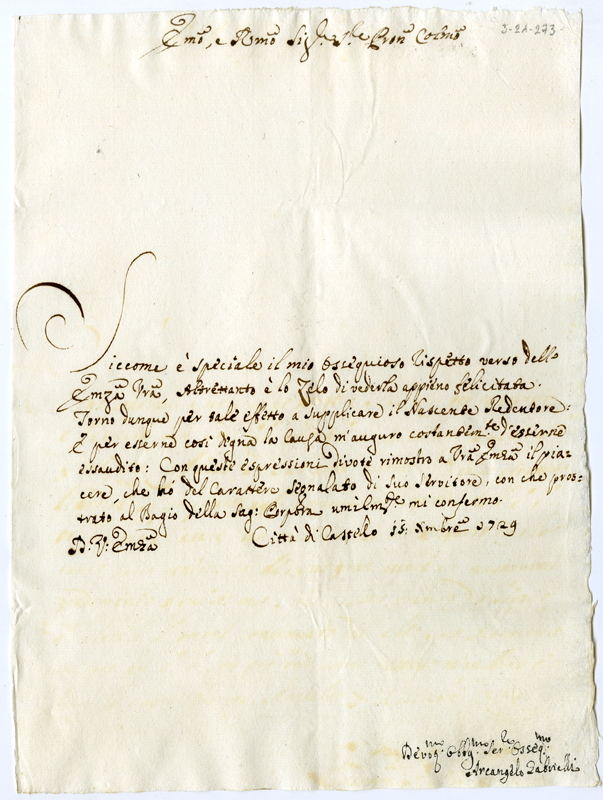 3-2A-273
Emo, e Rmo Sigre Sre Pron Colmo
Siccome è speciale il mio ossequioso rispetto verso dello
Emza Vra, Altrettanto è lo Zelo di vederla appieno felicitata.
Torno dunque per tale effetto a supplicare il Nascente Redentore:
E per esserne così degna la Causa m'auguro costantemte d'esserne
essaudito: Con queste espressioni divote rimostro a Vra Emza il pia=
cere, che hó del Carattere segnalato di suo Servitore, con che pros=
trato al Bagio della Sag: Porpora umilmte mi confermo.
D: V: Emza Città di Castello 15: Xmbre 1729
Devotmo Obbgmo Serre Osseqmo
Arcangelo Gabrielli